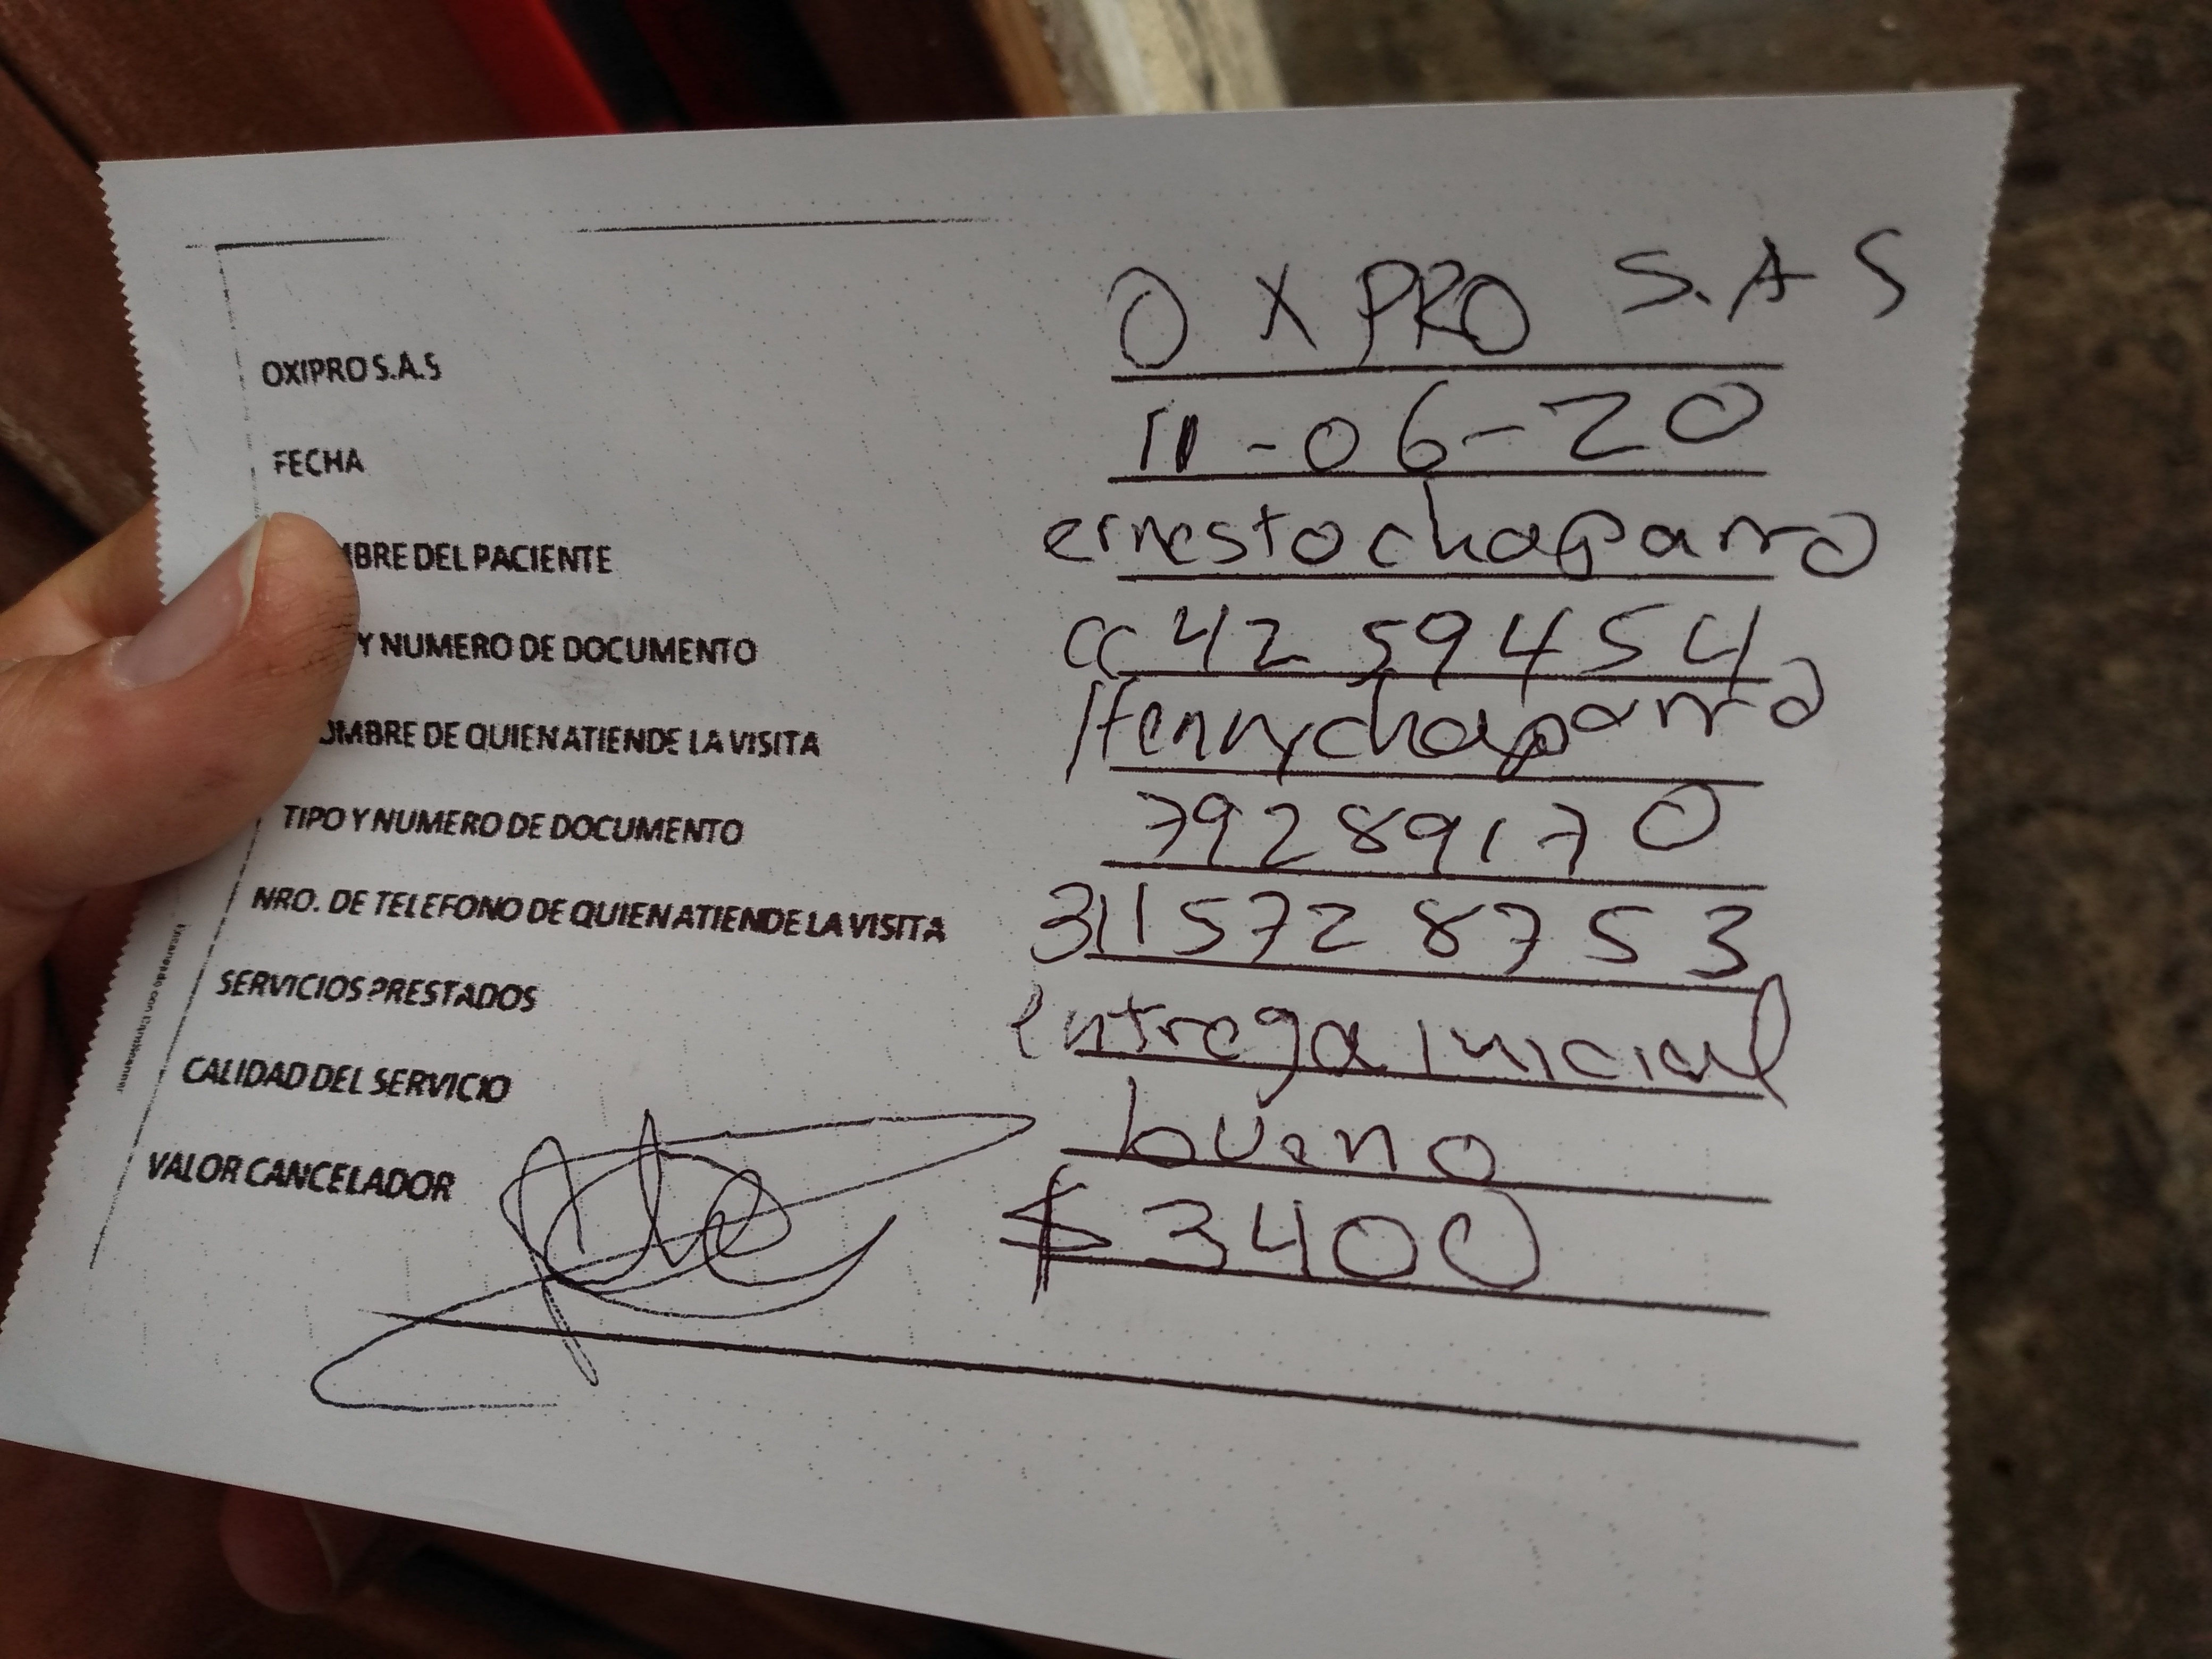 OXIPRO S.A.S O X PRO S.A S
FECHA 11-06-20
MBRE DEL PACIENTE ernesto chaparro
Y NUMERO DE DOCUMENTO CC 4259454
OMBRE DE QUIEN ATIENDE LA VISITA Henny chaparro
TIPO Y NUMERO DE DOCUMENTO 79289170
NRO. DE TELEFONO DE QUIEN ATIENDE LA VISITA 3115728753
SERVICIOS PRESTADOS entrega inicial
CALIDAD DEL SERVICIO bueno
VALOR CANCELADOR $3400